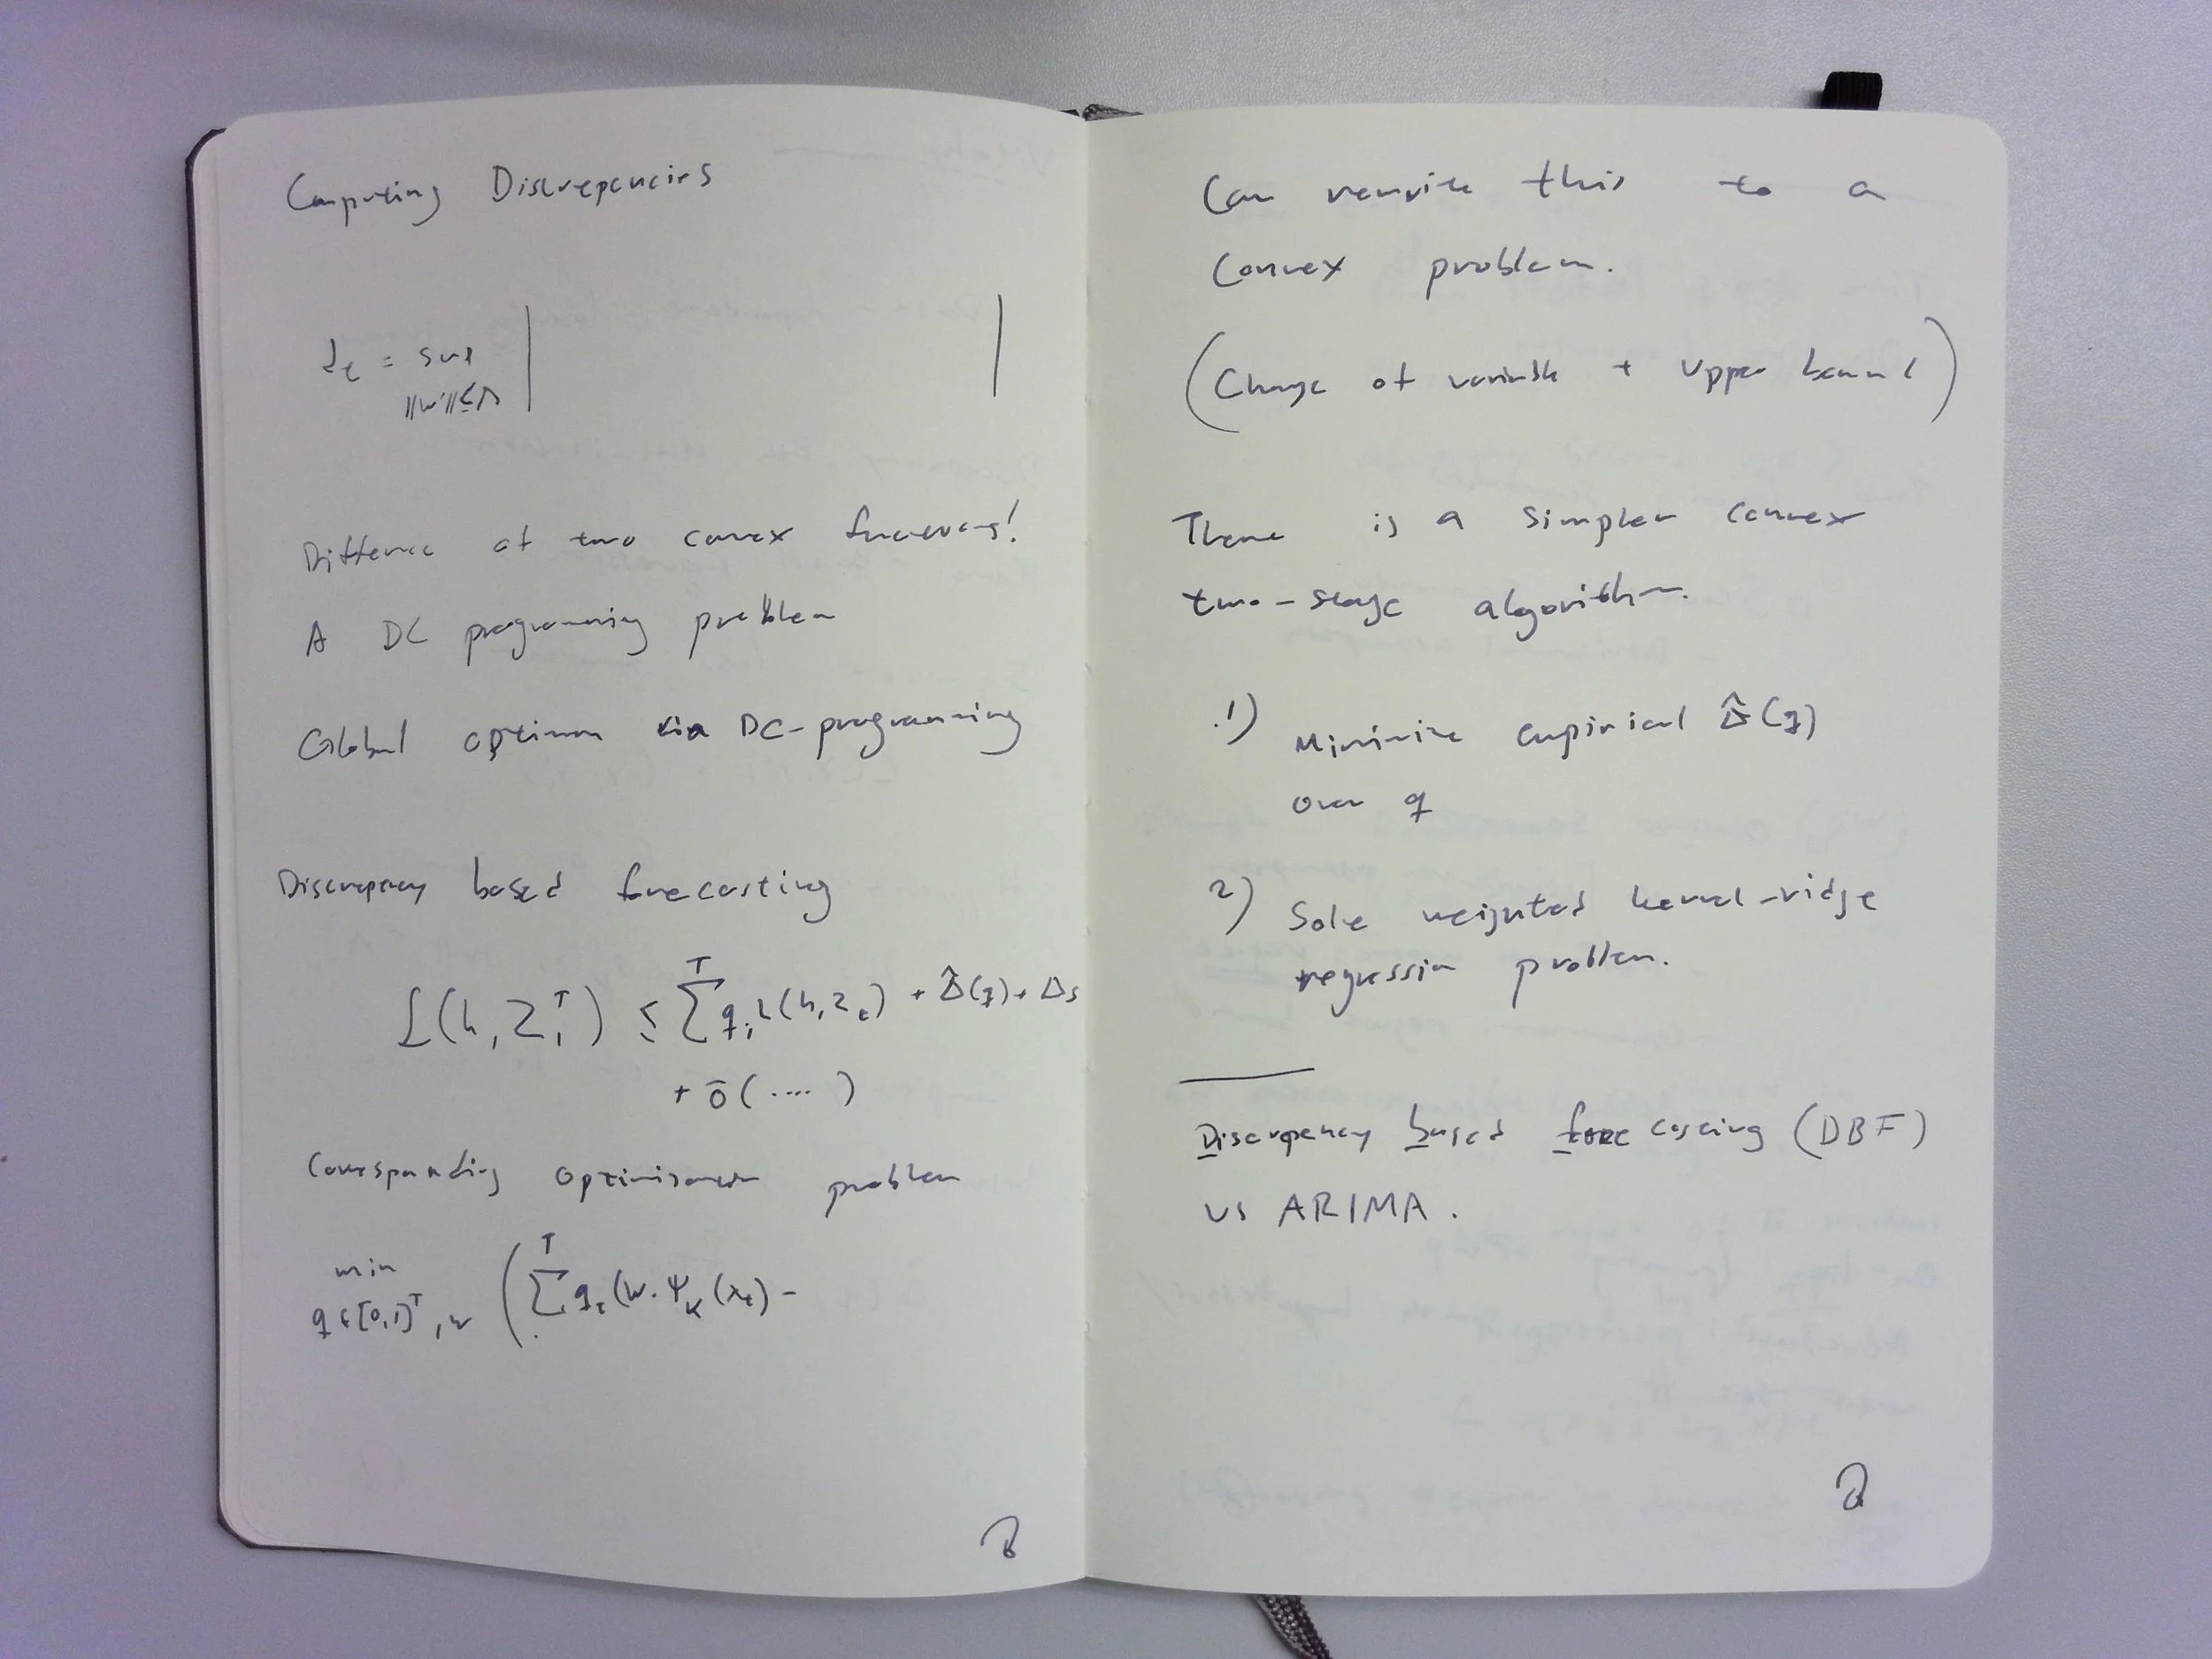 Computing Discrepencies
d_t = sup | |
||w'||≤Λ
Difference of two convex functions!
A DC programming problem
Global optimum via DC-programming
Discrepency based forecasting
L(h, Z_1^T) ≤ Σ^T q_i L(h, z_t) + Δ̂(q) + Δ_s
+ õ(....)
Corresponding optimisation problem
min
q∈[0,1]^T, w ( Σ^T q_t (w·Ψ_K(x_t) -
Can rewrite this to a
convex problem.
(Change of variable + upper bound)
There is a simpler convex
two-stage algorithm.
1) Minimize empirical Δ̂(q)
over q
2) Solve weighted kernel-ridge
regression problem.
Discrepency based forecasting (DBF)
vs ARIMA.